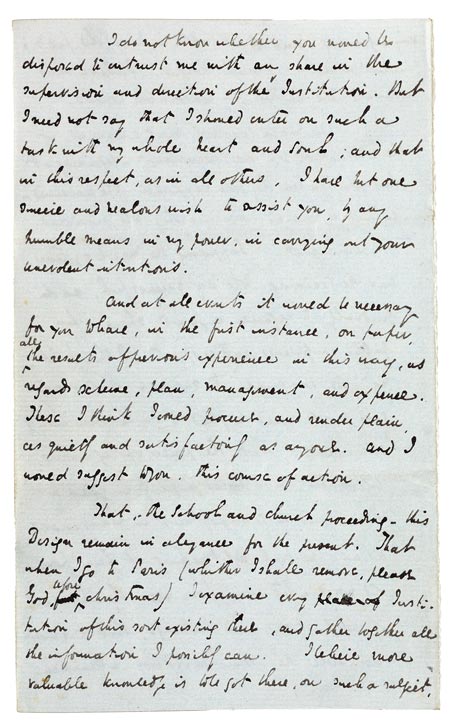 I do not know whether you would be
disposed to entrust me with any share in the
supervision and direction of the Institution. But
I need not say that I should enter on such a
task with my whole heart and soul; and that
in this respect, as in all others, I have but one
sincere and zealous wish to assist you, by any
humble means in my power, in carrying out your
benevolent intentions.
And at all events it would be necessary
for you to have, in the first instance, on paper,
all
the results of previous experience in this way, as
regards scheme, plan, management, and expence.
These I think I could procure, and render plain,
as quietly and satisfactorily as anyone. And I
would suggest to you, this course of action.
That,—the School and church proceeding—this
Design remain in abeyance for the present. That
when I go to Paris (whither I shall remove, please
God, before Christmas) I examine every Insti-
tution of this sort existing there, and gather together all
the information I possibly can. I believe more
valuable knowledge is to be got there, on such a subject,